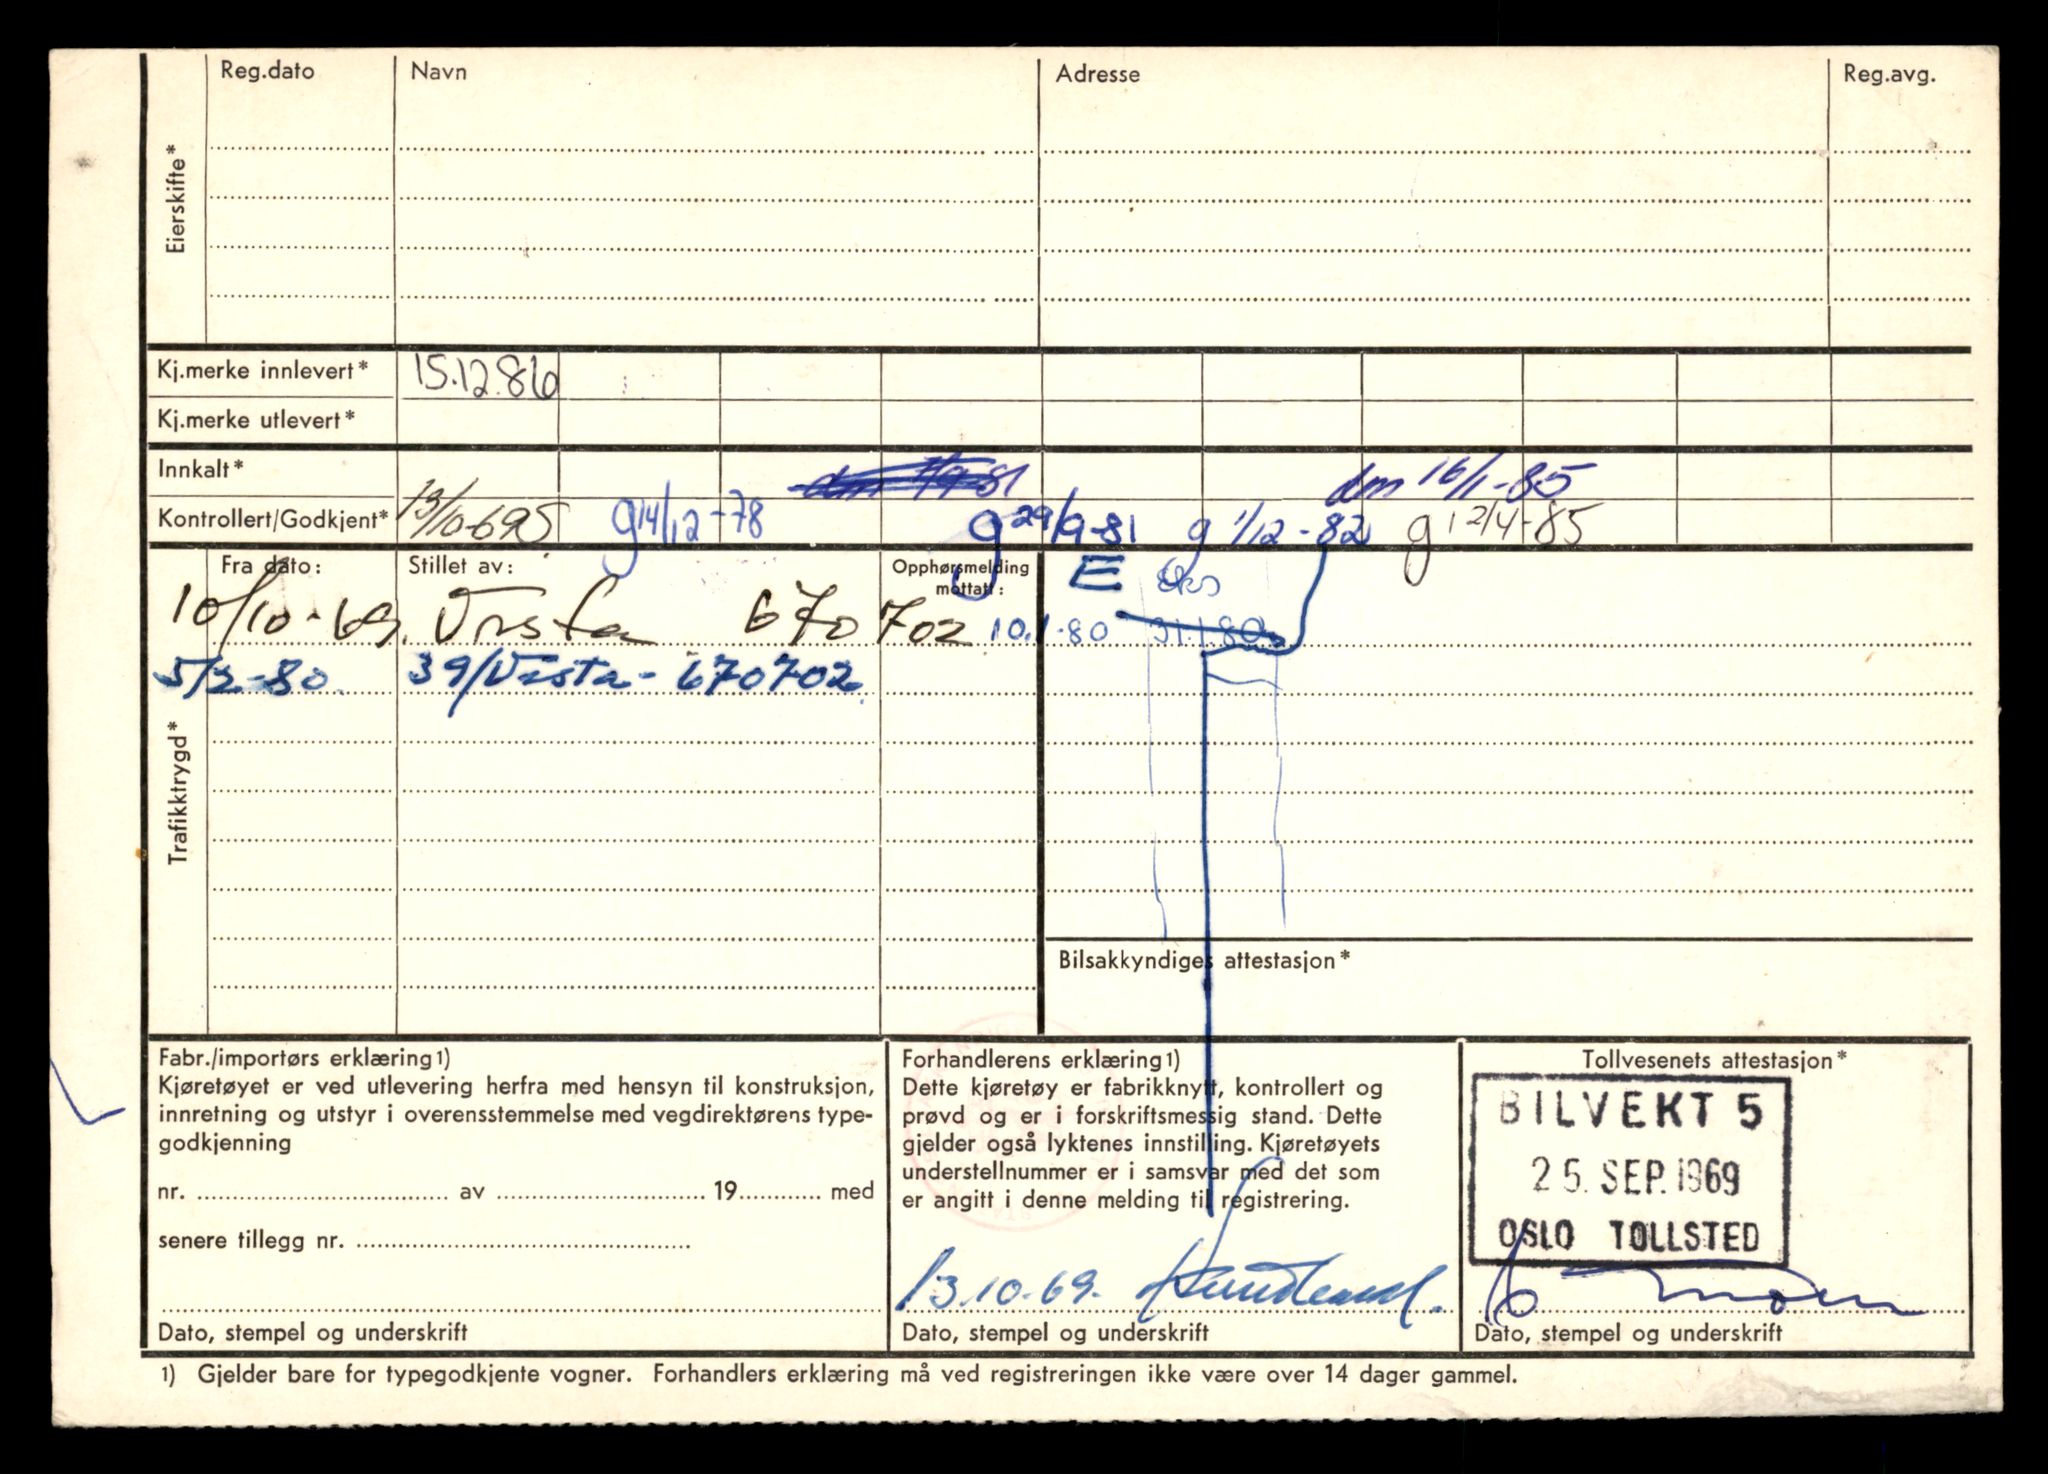 Reg.dato Navn Adresse Reg.avg.
Eierskifte*
Kj.merke innlevert* 15.12.86
Kj.merke utlevert*
Innkalt* dm 16/1-85
Kontrollert/Godkjent* 13/10-69 g 14/12-78 g 29/9-81 g 1/12-82 g 12/4-85
Trafikktrygd*
Fra dato: Stillet av: Opphørsmelding mottatt: E
10/10-69. Vesta 670702 10.1-80 31.1.80
5/2-80 39/Vesta - 670702
Bilsakkyndiges attestasjon*
Fabr./importørs erklæring 1)
Kjøretøyet er ved utlevering herfra med hensyn til konstruksjon,
innretning og utstyr i overensstemmelse med vegdirektørens type-
godkjenning
nr. .......... av .......... 19 .......... med
senere tillegg nr. ..........
Dato, stempel og underskrift
Forhandlerens erklæring 1)
Dette kjøretøy er fabrikknytt, kontrollert og
prøvd og er i forskriftsmessig stand. Dette
gjelder også lyktenes innstilling. Kjøretøyets
understellnummer er i samsvar med det som
er angitt i denne melding til registrering.
13.10.69.
Dato, stempel og underskrift
Tollvesenets attestasjon*
BILVEKT 5
25. SEP. 1969
OSLO TOLLSTED
Dato, stempel og underskrift
1) Gjelder bare for typegodkjente vogner. Forhandlers erklæring må ved registreringen ikke være over 14 dager gammel.